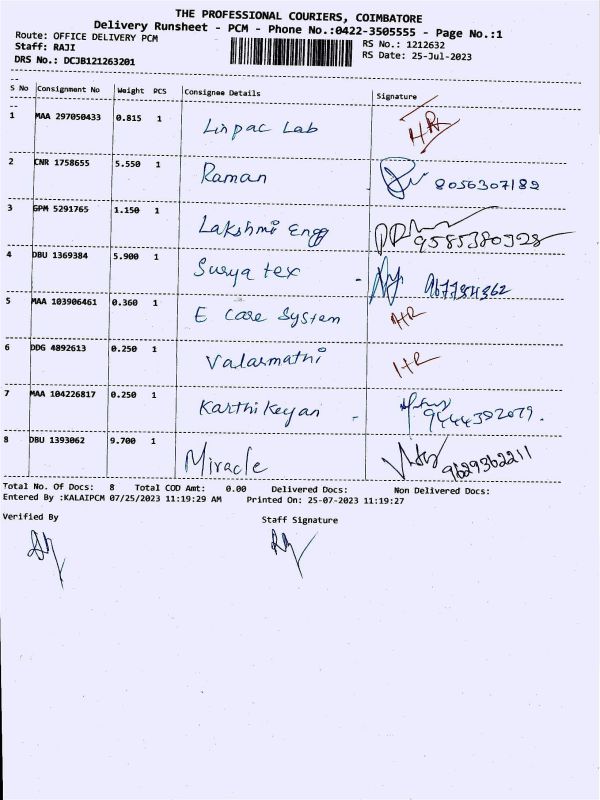 THE PROFESSIONAL COURIERS, COIMBATORE
Delivery Runsheet - PCM - Phone No.:0422-3505555 - Page No.:1
Route: OFFICE DELIVERY PCM RS No.: 1212632
Staff: RAJI RS Date: 25-Jul-2023
DRS No.: DCJB121263201
S No Consignment No Weight PCS Consignee Details Signature
1 MAA 297050433 0.815 1 Linpac Lab HR
2 CNR 1758655 5.550 1 Raman 8056307189
3 GPM 5291765 1.150 1 Lakshmi Engg 9585380928
4 DBU 1369384 5.900 1 Surya tex -
5 MAA 103906461 0.360 1 E Care System HR
6 DDG 4892613 0.250 1 Valarmathi HR
7 MAA 104226817 0.250 1 Karthikeyan - 9444392079.
8 DBU 1393062 9.700 1 Miracle 9629362211
Total No. Of Docs: 8 Total COD Amt: 0.00 Delivered Docs: Non Delivered Docs:
Entered By :KALAIPCM 07/25/2023 11:19:29 AM Printed On: 25-07-2023 11:19:27
Verified By Staff Signature